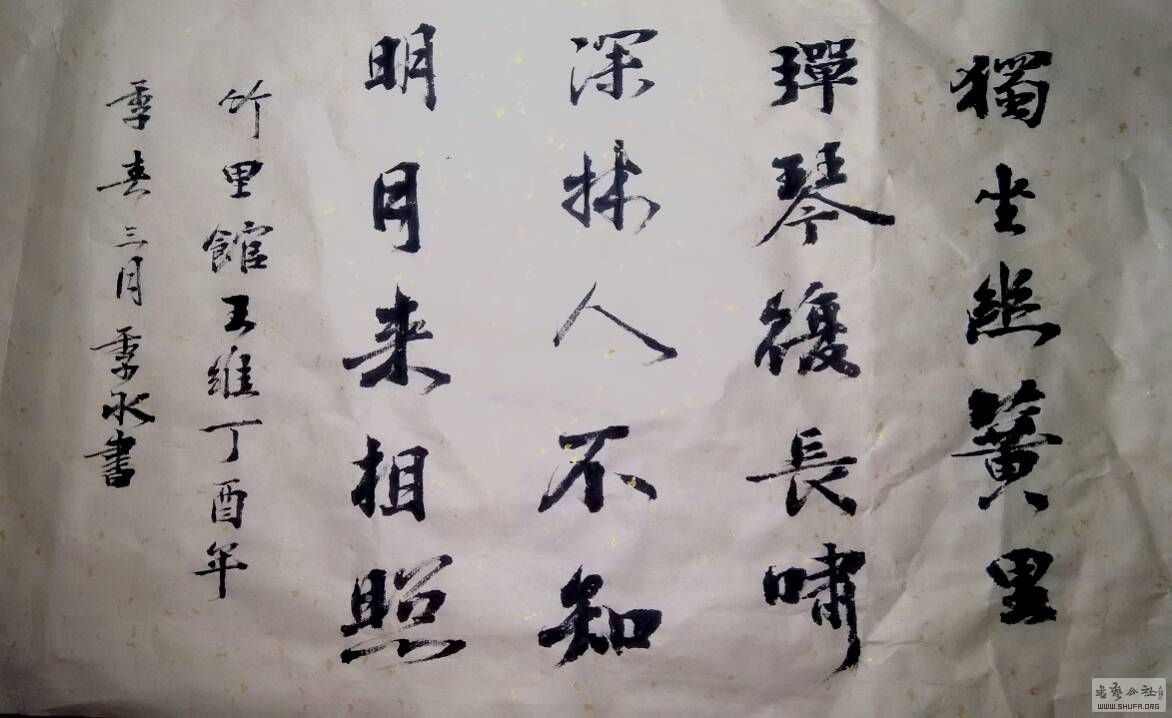 獨坐幽簧里
彈琴復長嘯
深林人不知
明月来相照
竹里館王維丁酉年
季春三月季永書
书艺公社
WWW.SHUFA.ORG